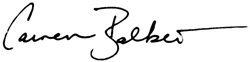 Carmen Balber